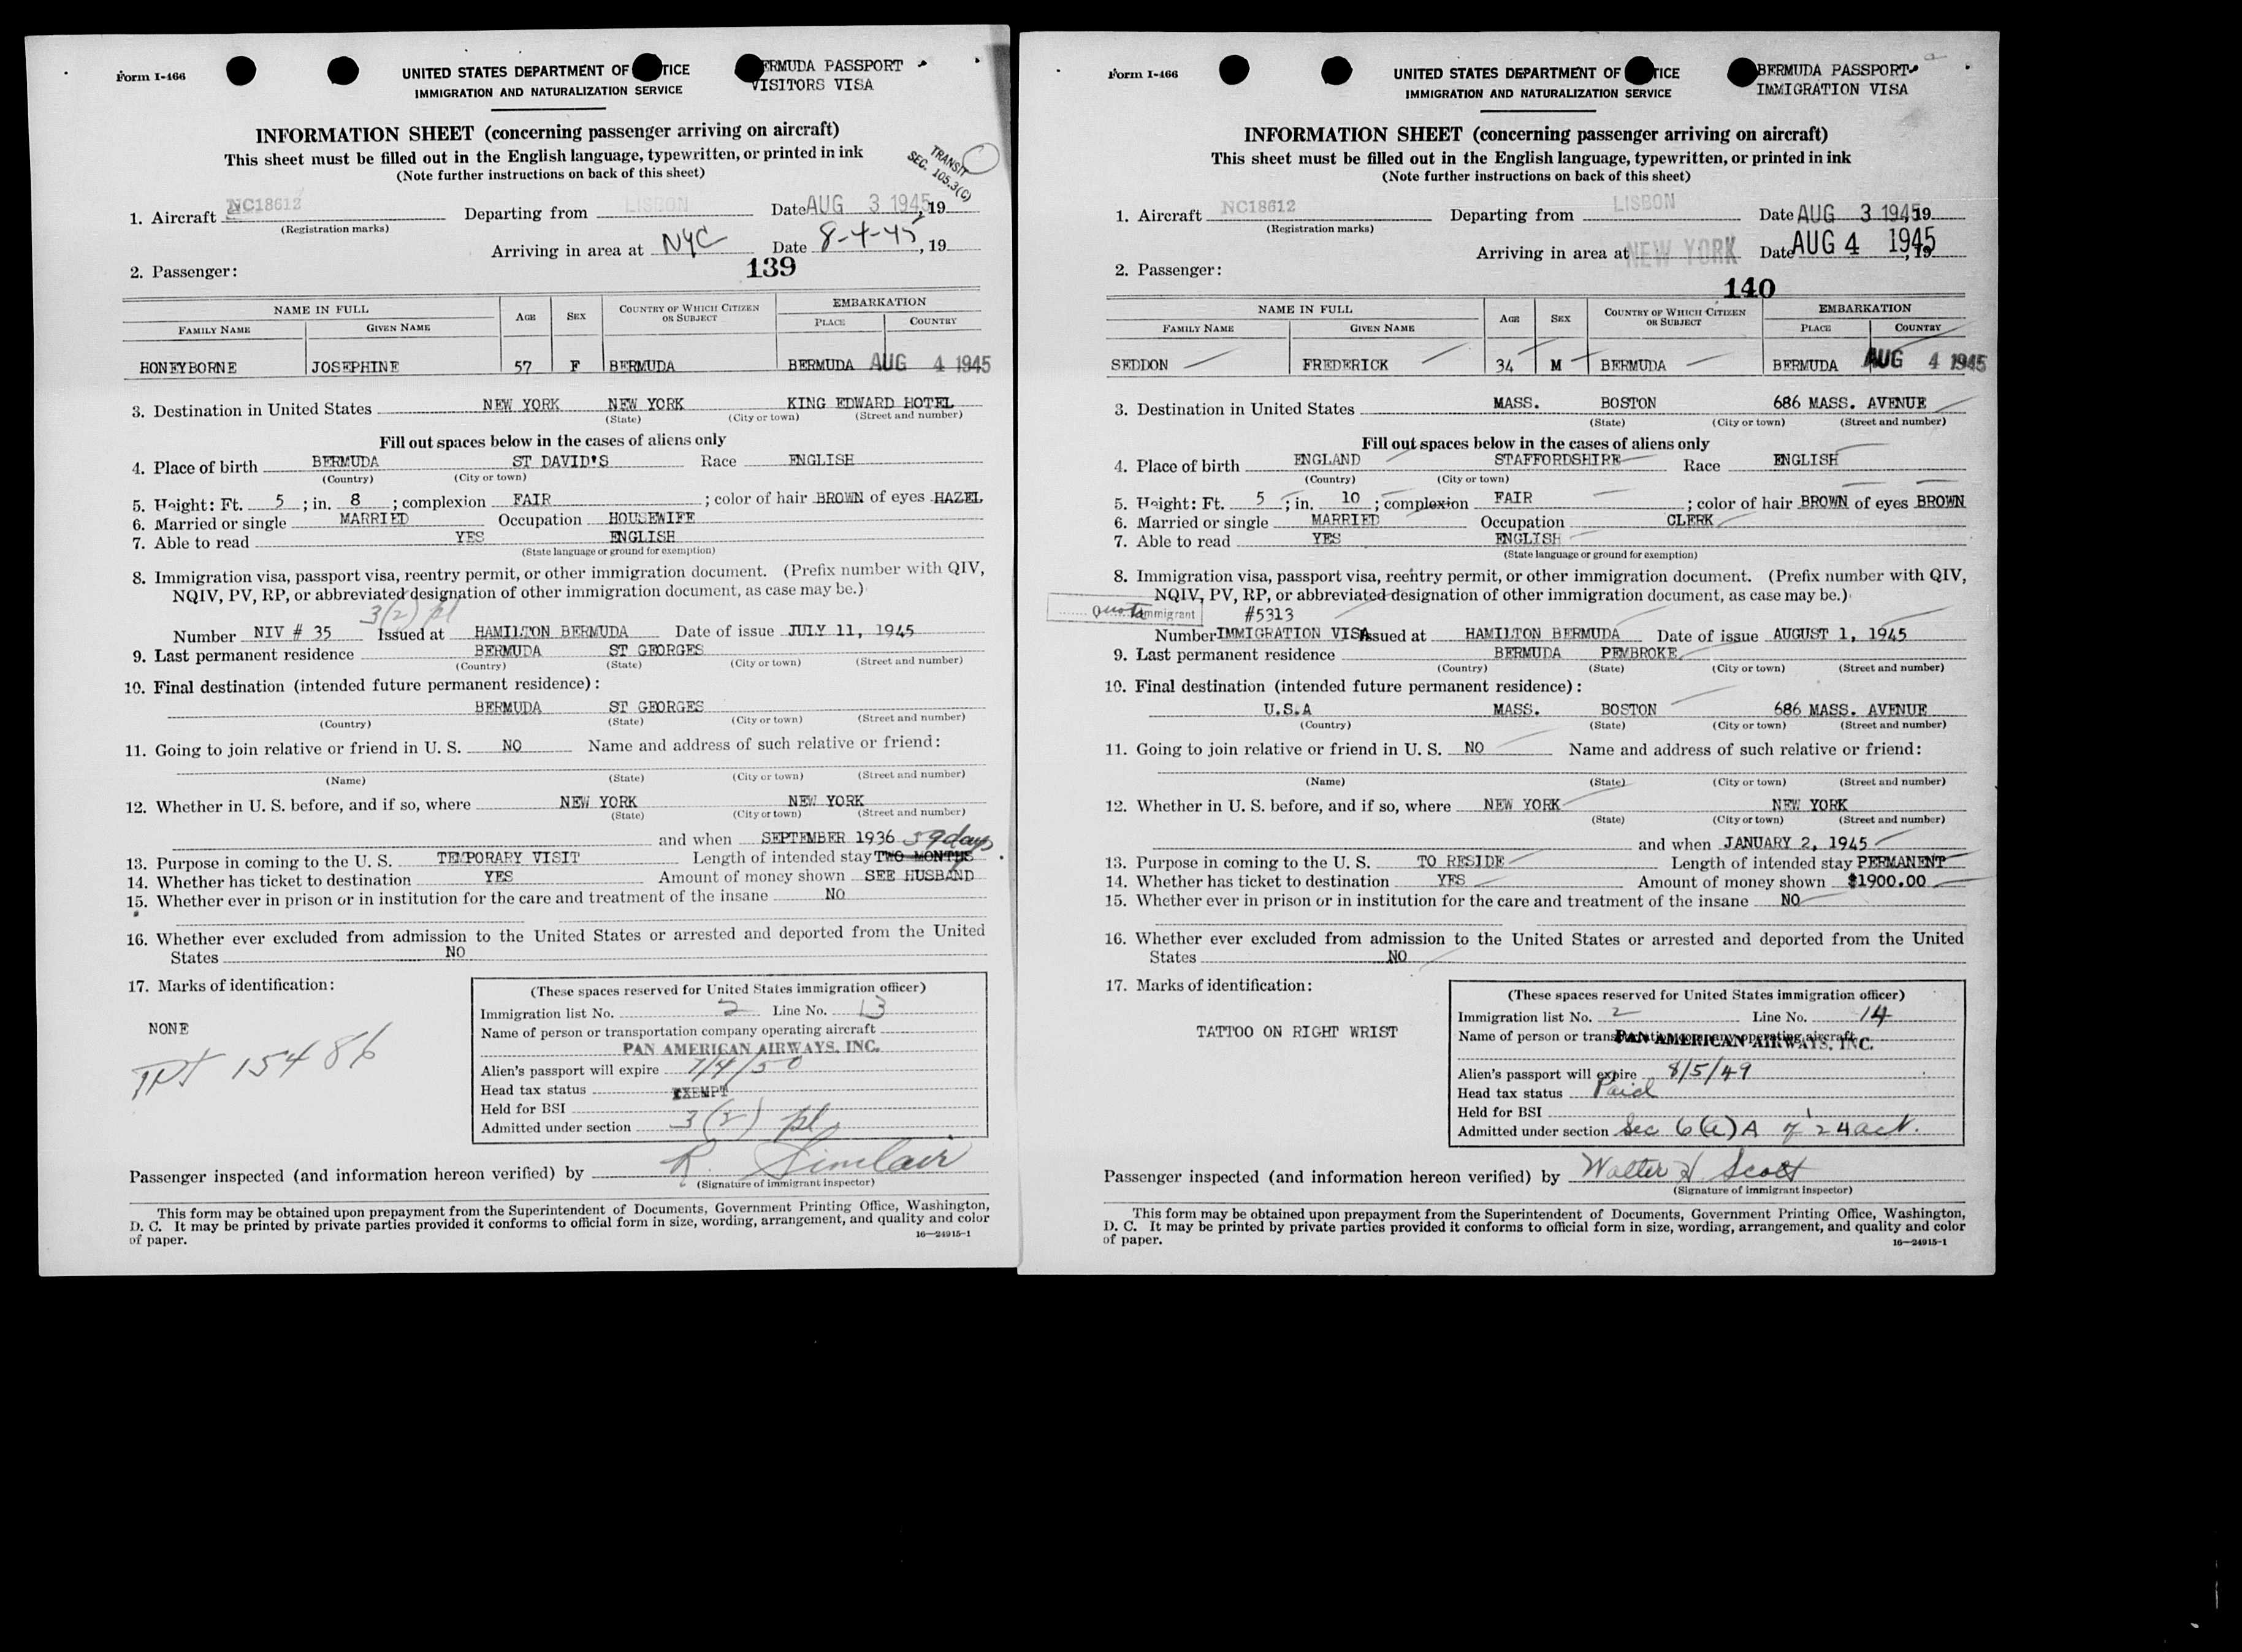 Form I-466
UNITED STATES DEPARTMENT OF TICE
IMMIGRATION AND NATURALIZATION SERVICE
ERMUDA PASSPORT
VISITORS VISA
INFORMATION SHEET (concerning passenger arriving on aircraft)
This sheet must be filled out in the English language, typewritten, or printed in ink
(Note further instructions on back of this sheet)
TRANSIT
SEC. 105.3(C)
1. Aircraft NC18612 Departing from LISBON Date AUG 3 1945, 19
(Registration marks)
Arriving in area at NYC Date 8-4-45, 19
2. Passenger: 139
NAME IN FULL AGE SEX COUNTRY OF WHICH CITIZEN OR SUBJECT EMBARKATION
FAMILY NAME GIVEN NAME PLACE COUNTRY
HONEYBORNE JOSEPHINE 57 F BERMUDA BERMUDA AUG 4 1945
3. Destination in United States NEW YORK NEW YORK KING EDWARD HOTEL
(State) (City or town) (Street and number)
Fill out spaces below in the cases of aliens only
4. Place of birth BERMUDA ST DAVID'S Race ENGLISH
(Country) (City or town)
5. Height: Ft. 5 ; in. 8 ; complexion FAIR ; color of hair BROWN of eyes HAZEL
6. Married or single MARRIED Occupation HOUSEWIFE
7. Able to read YES ENGLISH
(State language or ground for exemption)
8. Immigration visa, passport visa, reentry permit, or other immigration document. (Prefix number with QIV,
NQIV, PV, RP, or abbreviated designation of other immigration document, as case may be.)
3(2) pl
Number NIV # 35 Issued at HAMILTON BERMUDA Date of issue JULY 11, 1945
9. Last permanent residence BERMUDA ST GEORGES
(Country) (State) (City or town) (Street and number)
10. Final destination (intended future permanent residence):
BERMUDA ST GEORGES
(Country) (State) (City or town) (Street and number)
11. Going to join relative or friend in U. S. NO Name and address of such relative or friend:
(Name) (State) (City or town) (Street and number)
12. Whether in U. S. before, and if so, where NEW YORK NEW YORK
(State) (City or town) (Street and number)
and when SEPTEMBER 1936 59 days
13. Purpose in coming to the U. S. TEMPORARY VISIT Length of intended stay TWO MONTHS
14. Whether has ticket to destination YES Amount of money shown SEE HUSBAND
15. Whether ever in prison or in institution for the care and treatment of the insane NO
16. Whether ever excluded from admission to the United States or arrested and deported from the United
States NO
17. Marks of identification:
NONE
TPT 15486
(These spaces reserved for United States immigration officer)
Immigration list No. 2 Line No. 13
Name of person or transportation company operating aircraft
PAN AMERICAN AIRWAYS, INC.
Alien's passport will expire 7/4/50
Head tax status EXEMPT
Held for BSI
Admitted under section 3(2) pl
Passenger inspected (and information hereon verified) by R. Sinclair
(Signature of immigrant inspector)
This form may be obtained upon prepayment from the Superintendent of Documents, Government Printing Office, Washington,
D. C. It may be printed by private parties provided it conforms to official form in size, wording, arrangement, and quality and color
of paper. 16—24915-1
Form I-466
UNITED STATES DEPARTMENT OF TICE
IMMIGRATION AND NATURALIZATION SERVICE
BERMUDA PASSPORT
IMMIGRATION VISA
INFORMATION SHEET (concerning passenger arriving on aircraft)
This sheet must be filled out in the English language, typewritten, or printed in ink
(Note further instructions on back of this sheet)
1. Aircraft NC18612 Departing from LISBON Date AUG 3 1945, 19
(Registration marks)
Arriving in area at NEW YORK Date AUG 4 1945, 19
2. Passenger:
140
NAME IN FULL AGE SEX COUNTRY OF WHICH CITIZEN OR SUBJECT EMBARKATION
FAMILY NAME GIVEN NAME PLACE COUNTRY
SEDDON FREDERICK 34 M BERMUDA BERMUDA AUG 4 1945
3. Destination in United States MASS. BOSTON 686 MASS. AVENUE
(State) (City or town) (Street and number)
Fill out spaces below in the cases of aliens only
4. Place of birth ENGLAND STAFFORDSHIRE Race ENGLISH
(Country) (City or town)
5. Height: Ft. 5 ; in. 10 ; complexion FAIR ; color of hair BROWN of eyes BROWN
6. Married or single MARRIED Occupation CLERK
7. Able to read YES ENGLISH
(State language or ground for exemption)
8. Immigration visa, passport visa, reentry permit, or other immigration document. (Prefix number with QIV,
NQIV, PV, RP, or abbreviated designation of other immigration document, as case may be.)
Quota Immigrant #5313
Number IMMIGRATION VISA Issued at HAMILTON BERMUDA Date of issue AUGUST 1, 1945
9. Last permanent residence BERMUDA PEMBROKE
(Country) (State) (City or town) (Street and number)
10. Final destination (intended future permanent residence):
U.S.A MASS. BOSTON 686 MASS. AVENUE
(Country) (State) (City or town) (Street and number)
11. Going to join relative or friend in U. S. NO Name and address of such relative or friend:
(Name) (State) (City or town) (Street and number)
12. Whether in U. S. before, and if so, where NEW YORK NEW YORK
(State) (City or town) (Street and number)
and when JANUARY 2, 1945
13. Purpose in coming to the U. S. TO RESIDE Length of intended stay PERMANENT
14. Whether has ticket to destination YES Amount of money shown $1900.00
15. Whether ever in prison or in institution for the care and treatment of the insane NO
16. Whether ever excluded from admission to the United States or arrested and deported from the United
States NO
17. Marks of identification:
TATTOO ON RIGHT WRIST
(These spaces reserved for United States immigration officer)
Immigration list No. 2 Line No. 14
Name of person or transportation company operating aircraft
PAN AMERICAN AIRWAYS, INC.
Alien's passport will expire 8/5/49
Head tax status Paid
Held for BSI
Admitted under section Sec 6(a)A of '24 act.
Passenger inspected (and information hereon verified) by Walter H. Scott
(Signature of immigrant inspector)
This form may be obtained upon prepayment from the Superintendent of Documents, Government Printing Office, Washington,
D. C. It may be printed by private parties provided it conforms to official form in size, wording, arrangement, and quality and color
of paper. 16—24915-1